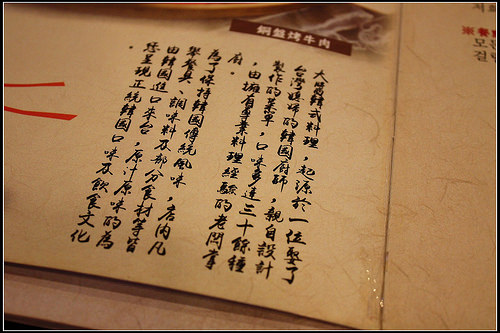 銅盤烤牛肉
大憨韓式料理，起源於一位娶了
台灣媳婦的韓國廚師，親自設計
製作的菜單，口味多達三十餘種
，由擁有專業料理經驗的老闆掌
廚。
為了保持韓國傳統風味，店內凡
舉餐具、調味料及部分食材等皆
由韓國進口來台，原汁原味的為
您呈現正統韓國口味及飲食文化